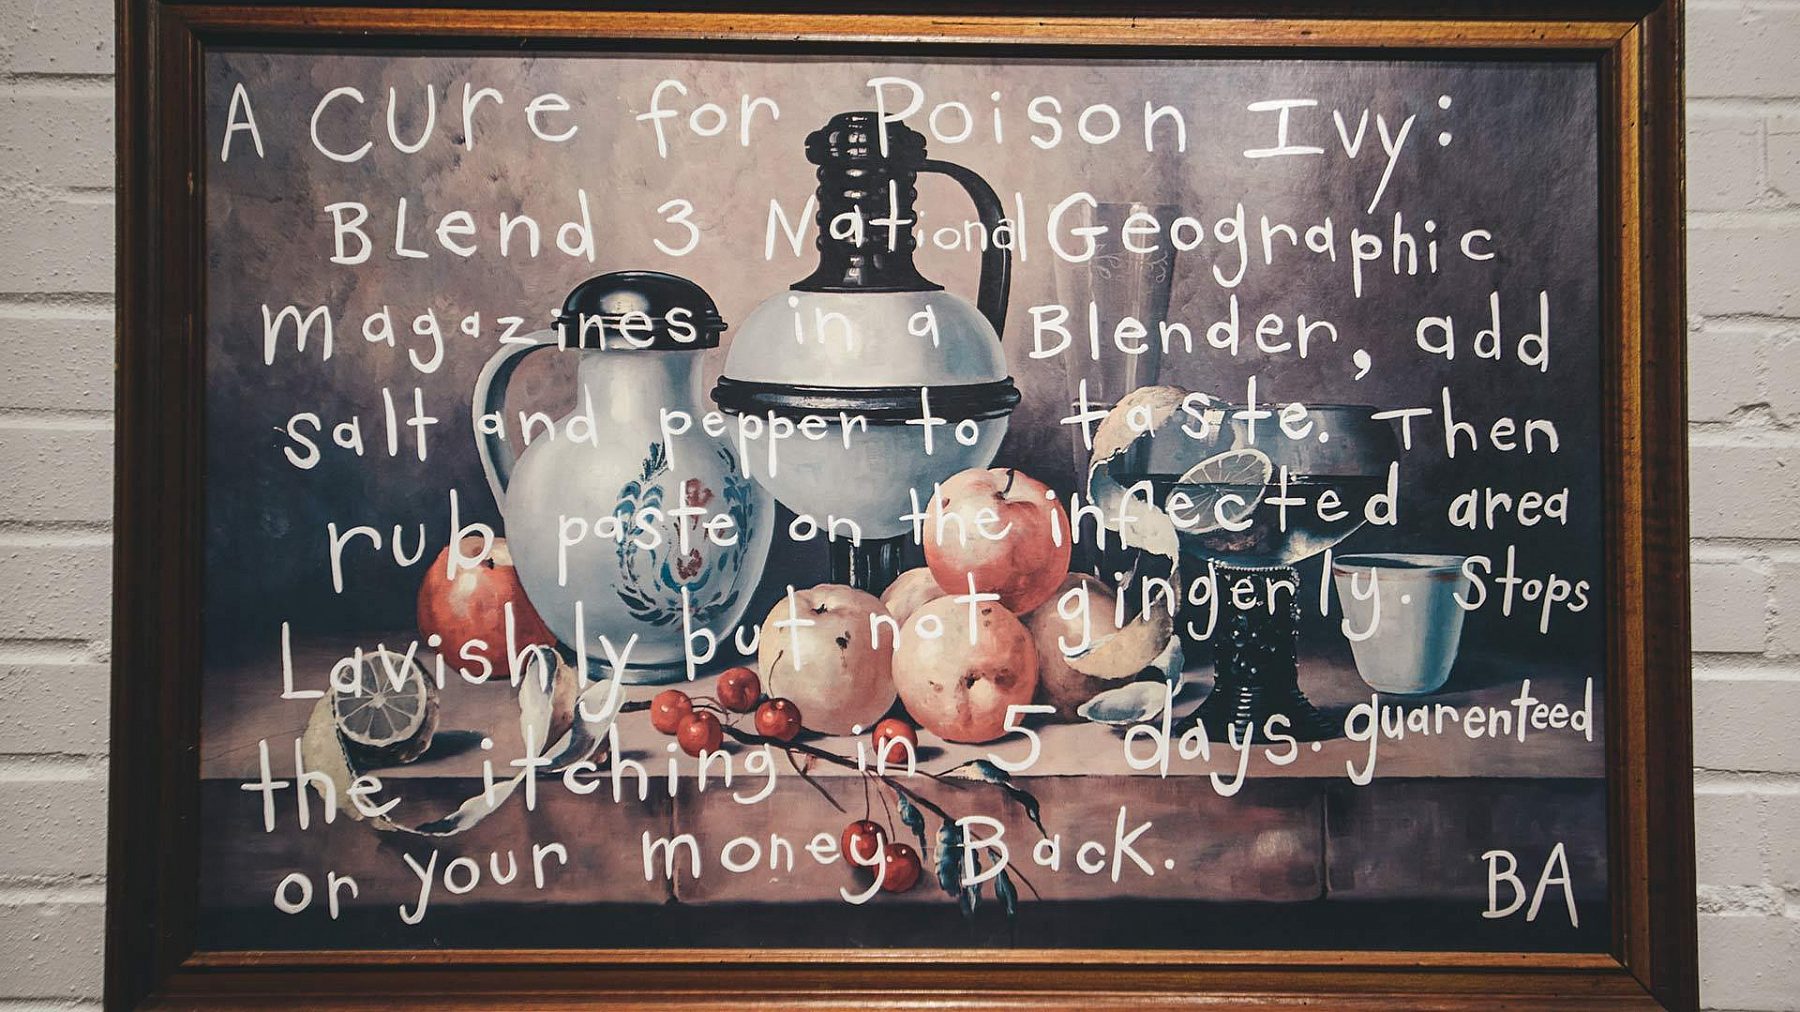 A CUre for Poison Ivy:
BLend 3 National Geographic
magazines in a Blender, add
salt and pepper to taste. Then
rub paste on the infected area
Lavishly but not gingerly. Stops
the itching in 5 days. guarenteed
or your money Back.
BA